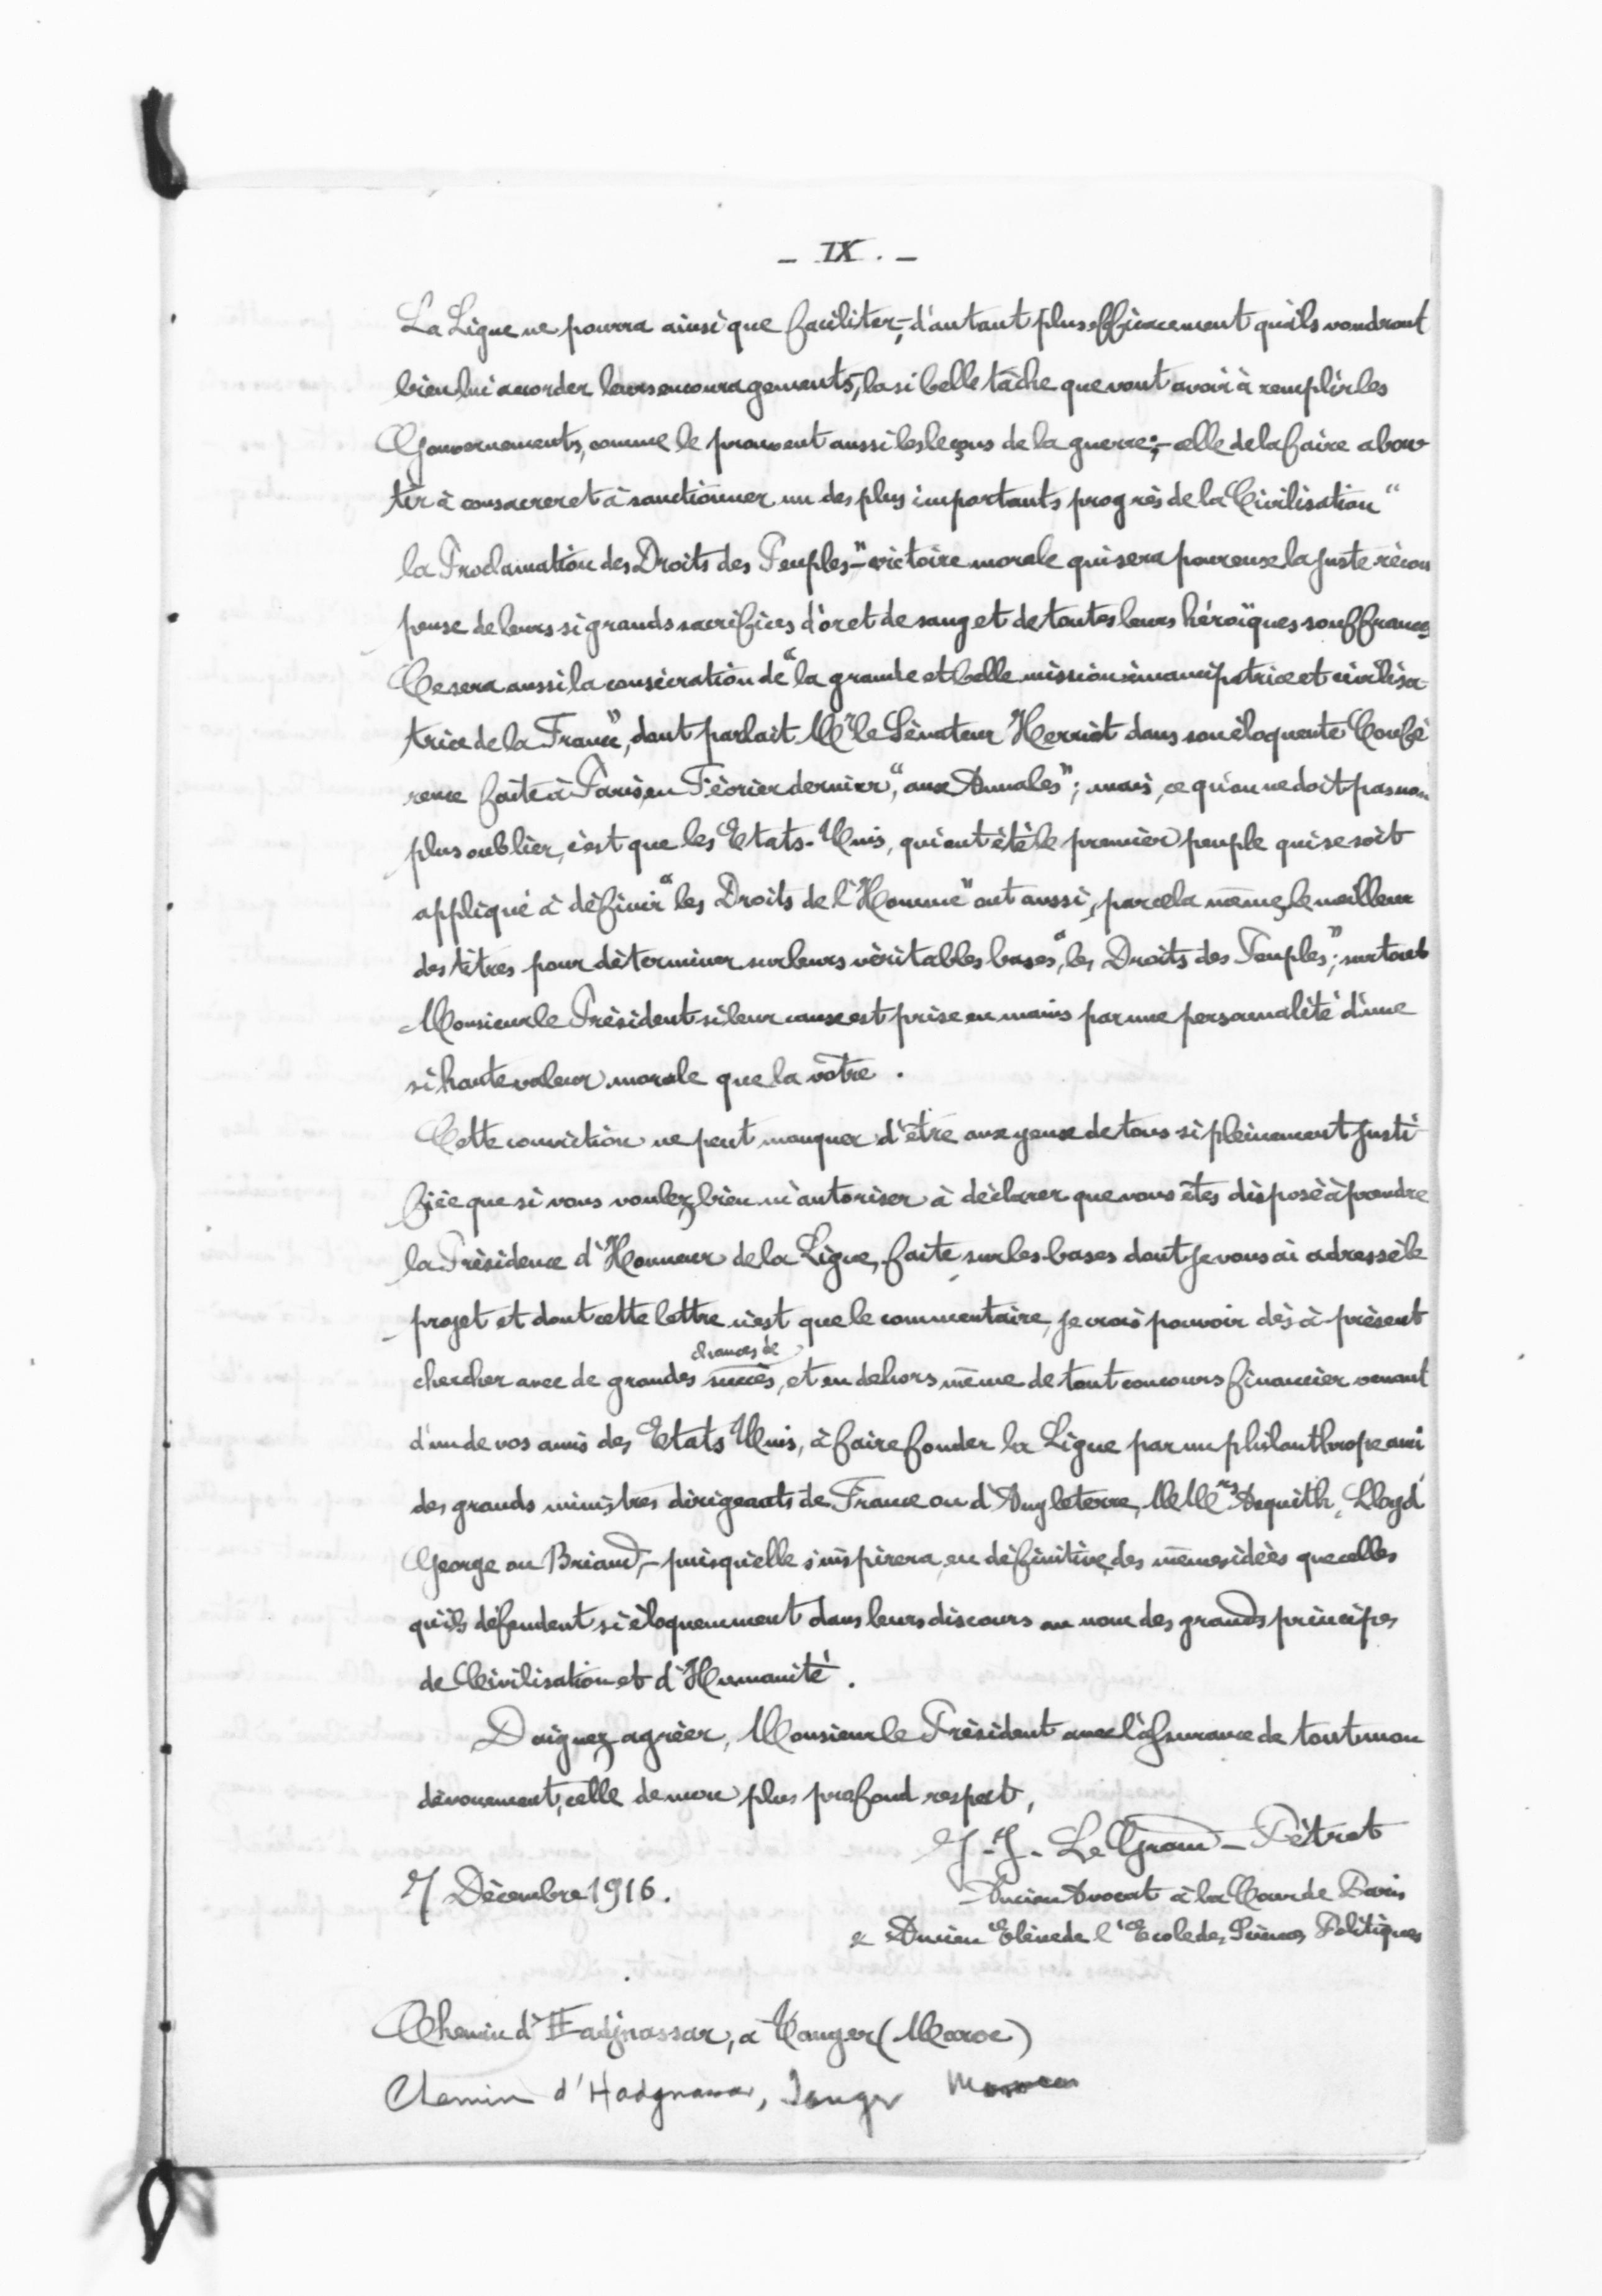 _ IX . _
La Ligue ne pourra ainsi que faciliter,- d'autant plus efficacement qu'ils voudront
bien lui accorder leurs encouragements,- la si belle tâche que vont avoir à remplir les
Gouvernements, comme le prouvent aussi les leçons de la guerre;- celle de la faire abou
tir à consacrer et à sanctionner un des plus importants progrès de la Civilisation "
la Proclamation des Droits des Peuples"- victoire morale qui sera pour eux la juste récom
pense de leurs si grands sacrifices d'or et de sang et de toutes leurs héroïques souffrances
Ce sera aussi la consécration de "la grande et belle mission émancipatrice et civilisa-
trice de la France", dont parlait Mr le Sénateur Herriot dans son éloquente Confé
rence faite à Paris, en Février dernier, "aux Annales"; mais, ce qu'on ne doit pas non
plus oublier, c'est que les Etats-Unis, qui ont été le premier peuple qui se soit
appliqué à définir "les Droits de l'Homme" ont aussi, par cela même, le meilleur
des titres pour déterminer sur leurs véritables bases, "les Droits des Peuples"; surtout
Monsieur le Président si leur cause est prise en mains par une personnalité d'une
si haute valeur morale que la vôtre .
Cette conviction ne peut manquer d'être aux yeux de tous si pleinement justi
fiée que si vous voulez bien m'autoriser à déclarer que vous êtes disposé à prendre
la Présidence d'Honneur de la Ligue, faite sur les bases dont je vous ai adressé le
projet et dont cette lettre n'est que le commentaire, je crois pouvoir dès à présent
chances de
chercher avec de grandes succès, et en dehors même de tout concours financier venant
d'un de vos amis des Etats Unis, à faire fonder la Ligue par un philanthrope ami
des grands ministres dirigeants de France ou d'Angleterre, MMrs Asquith, Lloyd
George ou Briand,- puisqu'elle s'inspirera, en définitive, des mêmes idées que celles
qu'ils défendent si éloquemment dans leurs discours au nom des grands principes
de Civilisation et d'Humanité .
Daignez agréer, Monsieur le Président avec l'assurance de tout mon
dévouement, celle de mon plus profond respect,
J.-J. Le Grand-Pétrot
7 Décembre 1916.
Ancien Avocat à la Cour de Paris
& Ancien Elève de l'Ecole des Sciences Politiques
Chemin d'Hadjnassar, à Tanger (Maroc)
Chemin d'Hadgnassar, Tanger Morocco